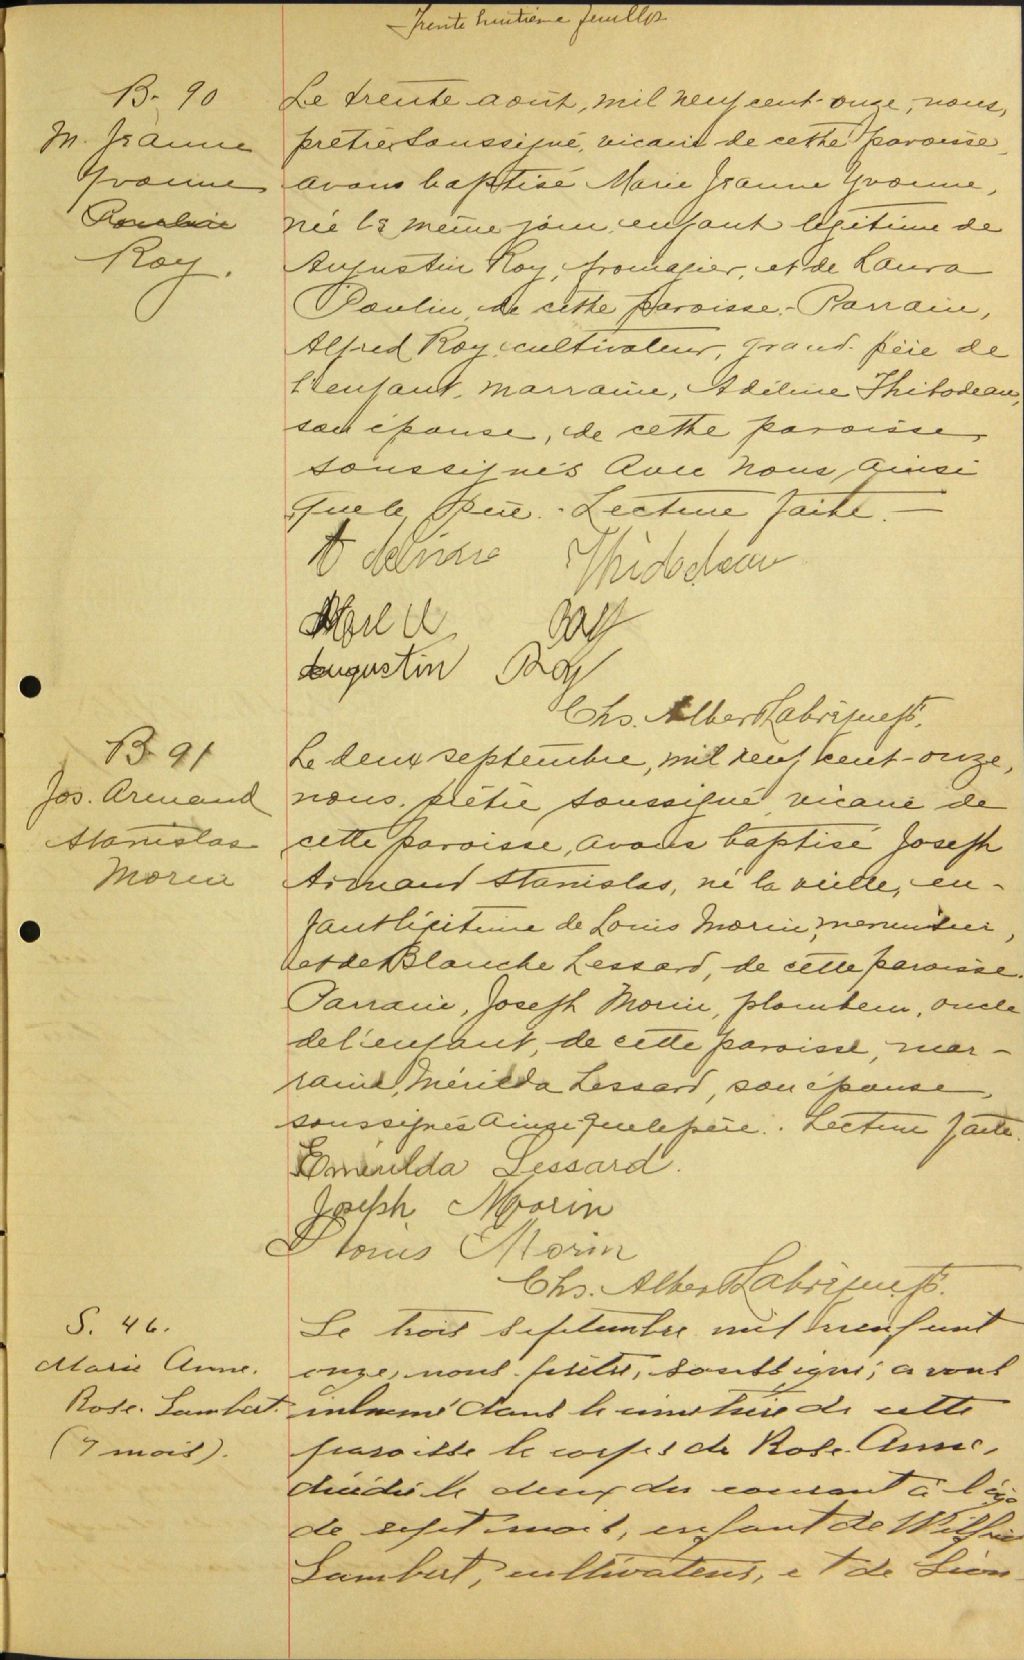 Trente huitième feuillet
B. 90
M. Jeanne
Yvonne
Roy.
Le trente août, mil neuf cent-onze, nous,
prêtre soussigné, vicaire de cette paroisse,
avons baptisé Marie Jeanne Yvonne,
née le même jour, enfant légitime de
Augustin Roy, fromagier, et de Laura
Poulin, de cette paroisse.- Parrain,
Alfred Roy, cultivateur, grand-père de
l'enfant, marraine, Adéline Thibodeau,
son épouse, de cette paroisse,
soussignés avec nous, ainsi
que le père. - Lecture faite. -
Adeline Thibodeau
Roy
Augustin Roy
Chs. Albert Labrèque Ptr.
B. 91
Jos. Armand
Stanislas
Morin
Le deux septembre, mil neuf cent-onze,
nous, prêtre soussigné, vicaire de
cette paroisse, avons baptisé Joseph
Armand Stanislas, né la veille, en-
fant légitime de Louis Morin, menuisier,
et de Blanche Lessard, de cette paroisse.
Parrain, Joseph Morin, plombeur, oncle
de l'enfant, de cette paroisse, mar-
raine, Mérilda Lessard, son épouse,
soussignés ainsi que le père. . Lecture faite.
Emérilda Lessard.
Joseph Morin
Louis Morin
Chs. Albert Labrèque Ptr.
S. 46.
Marie Anne.
Rose. Lambert.
(7 mois).
Le trois septembre mil neuf cent
onze, nous prêtre, soussigné, avons
inhumé dans le cimetière de cette
paroisse le corps de Rose. Anne,
décédée le deux du courant à l'âge
de sept mois, enfant de Wilfrid
Lambert, cultivateur, et de Léon-